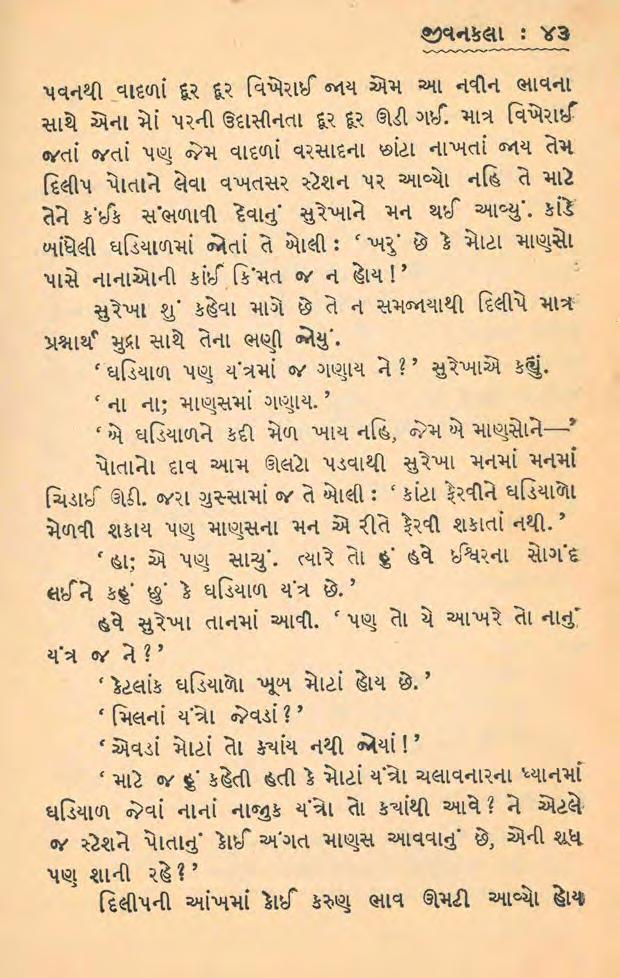 જીવનકલા : ૪૩
પવનથી વાદળાં દૂર દૂર વિખેરાઈ જાય એમ આ નવીન ભાવના
સાથે એના માં પરની ઉદાસીનતા દૂર દૂર ઊડી ગઈ. માત્ર વિખેરાઈ
જતાં જતાં પણ જેમ વાદળાં વરસાદના છાંટા નાખતાં જાય તેમ
દિલીપ પોતાને લેવા વખતસર સ્ટેશન પર આવ્યો નહિ તે માટે
તેને કંઈક સંભળાવી દેવાનું સુરેખાને મન થઈ આવ્યું. કાંડે
બાંધેલી ઘડિયાળમાં જોતાં તે બોલી : ‘ ખરું છે કે મોટા માણસો
પાસે નાનાઓની કાંઈ કિંમત જ ન હોય ! ’
સુરેખા શું કહેવા માગે છે તે ન સમજાયાથી દિલીપે માત્ર
પ્રશ્નાર્થ મુદ્રા સાથે તેના ભણી જોયું.
‘ ઘડિયાળ પણ યંત્રમાં જ ગણાય ને ? ’ સુરેખાએ કહ્યું.
‘ ના ના; માણસમાં ગણાય. ’
‘ બે ઘડિયાળને કદી મેળ ખાય નહિ, જેમ બે માણસોને—’
પોતાનો દાવ આમ ઊલટો પડવાથી સુરેખા મનમાં મનમાં
ચિડાઈ ઊઠી. જરા ગુસ્સામાં જ તે બોલી : ‘ કાંટા ફેરવીને ઘડિયાળો
મેળવી શકાય પણ માણસના મન એ રીતે ફેરવી શકાતાં નથી. ’
‘ હા; એ પણ સાચું. ત્યારે તો હું હવે ઈશ્વરના સોગંદ
લઈને કહું છું કે ઘડિયાળ યંત્ર છે. ’
હવે સુરેખા તાનમાં આવી. ‘ પણ તો યે આખરે તો નાનું
યંત્ર જ ને ? ’
‘ કેટલાંક ઘડિયાળો ખૂબ મોટાં હોય છે. ’
‘ મિલનાં યંત્રો જેવડાં ? ’
‘ એવડાં મોટાં તો ક્યાંય નથી જોયાં ! ’
‘ માટે જ હું કહેતી હતી કે મોટાં યંત્રો ચલાવનારના ધ્યાનમાં
ઘડિયાળ જેવાં નાનાં નાજુક યંત્રો તો ક્યાંથી આવે ? ને એટલે
જ સ્ટેશને પોતાનું કોઈ અંગત માણસ આવવાનું છે, એની શૂધ
પણ શાની રહે ? ’
દિલીપની આંખમાં કોઈ કરુણ ભાવ ઊમટી આવ્યો હોય